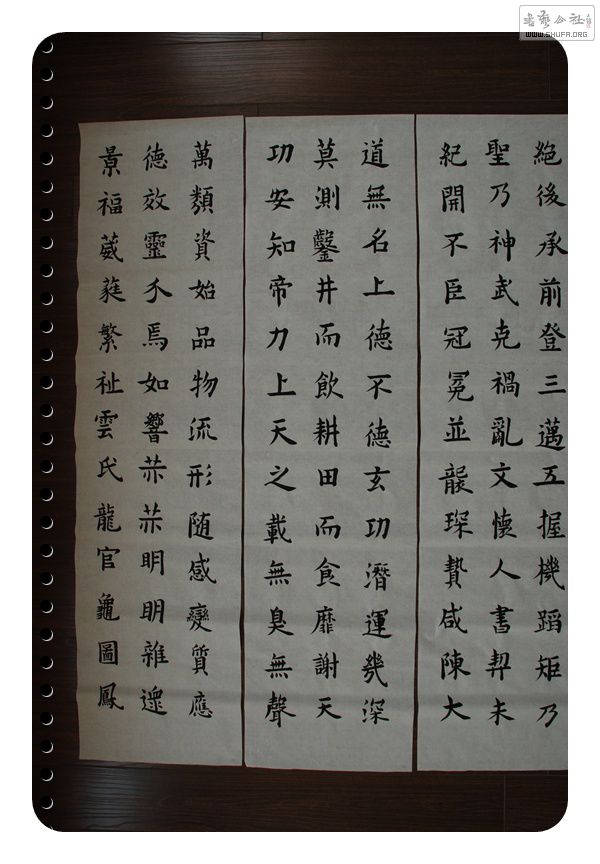 絕後承前登三邁五握機蹈矩乃
聖乃神武克禍亂文懷人書契未
紀開不臣冠冕並襲琛贄咸陳大
道無名上德不德玄功潛運幾深
莫測鑿井而飲耕田而食靡謝天
功安知帝力上天之載無臭無聲
萬類資始品物流形随感變質應
德效靈介焉如響赫赫明明雜遝
景福葳蕤繁祉雲氏龍官龜圖鳳
書藝公社
WWW.SHUFA.ORG